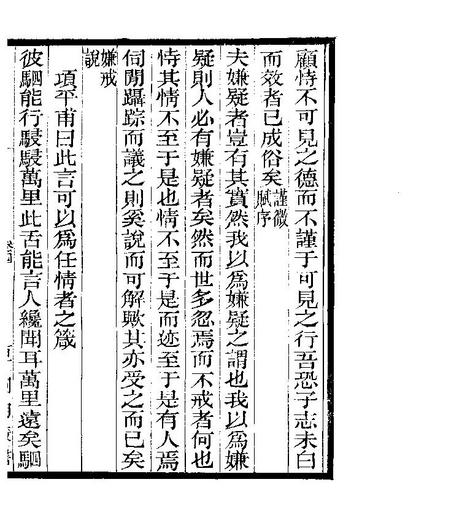 顧恃不可見之德而不謹于可見之行吾恐子志未白
而效者已成俗矣謹微賦序
夫嫌疑者豈有其實然我以爲嫌疑之謂也我以爲嫌
疑則人必有嫌疑者矣然而世多忽焉而不戒者何也
恃其情不至于是也情不至于是而迹至于是有人焉
伺閒躡踪而議之則奚說而可解歟其亦受之而已矣
嫌戒說
項平甫曰此言可以爲任情者之箴
彼駟能行駸駸萬里此舌能言人纔聞耳萬里遠矣駟